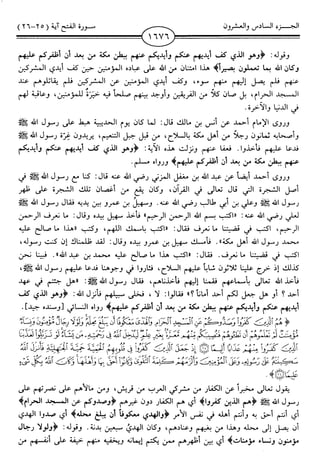 الجـزء السادس والعشرون
١٦٧٦
سـورة الفتح آية (٢٥-٢٦)
وقوله: ﴿وهو الذي كف أيديهم عنكم وأيديكم عنهم ببطن مكة من بعد أن أظفركم عليهم
وكان الله بما تعملون بصيراً﴾ هذا امتنان من الله على عباده المؤمنين حين كف أيدي المشركين
عنهم فلم يصل إليهم منهم سوء، وكف أيدي المؤمنين عن المشركين فلم يقاتلوهم عند
المسجد الحرام، بل صان كلاً من الفريقين وأوجد بينهم صلحاً فيه خيرة للمؤمنين، وعاقبة لهم
في الدنيا والآخرة.
وروى الإمام أحمد عن أنس بن مالك قال: لما كان يوم الحديبية هبط على رسول الله ﷺ
وأصحابه ثمانون رجلاً من أهل مكة بالسلاح، من قبل جبل التنعيم، يريدون غرة رسول الله ﷺ
فدعا عليهم فأخذوا. فعفا عنهم ونزلت هذه الآية: ﴿وهو الذي كف أيديهم عنكم وأيديكم
عنهم ببطن مكة من بعد أن أظفركم عليهم﴾ ورواه مسلم.
وروى أحمد أيضاً عن عبد الله بن مغفل المزني رضي الله عنه قال: كنا مع رسول الله ﷺ في
أصل الشجرة التي قال تعالى في القرآن، وكان يقع من أغصان تلك الشجرة على ظهر
رسول الله ﷺ وعلي بن أبي طالب رضي الله عنه. وسهيل بن عمرو بين يديه فقال رسول الله ﷺ
لعلي رضي الله عنه: «اكتب بسم الله الرحمن الرحيم» فأخذ سهيل بيده وقال: ما نعرف الرحمن
الرحيم، اكتب في قضيتنا ما نعرف فقال: «اكتب باسمك اللهم، وكتب «هذا ما صالح عليه
محمد رسول الله أهل مكة». فأمسك سهيل بن عمرو بيده وقال: لقد ظلمناك إن كنت رسوله،
اكتب في قضيتنا ما نعرف. فقال: «اكتب هذا ما صالح عليه محمد بن عبد الله». فبينا نحن
كذلك إذ خرج علينا ثلاثون شاباً عليهم السلاح، فثاروا في وجوهنا فدعا عليهم رسول الله ﷺ،
فأخذ الله تعالى بأسماعهم فقمنا إليهم فأخذناهم، فقال رسول الله ﷺ: «هل جئتم في عهد
أحد؟ أو هل جعل لكم أحد أماناً؟» فقالوا: لا ، فخلى سبيلهم فأنزل الله: ﴿وهو الذي كف
أيديهم عنكم وأيديكم عنهم ببطن مكة من بعد أن أظفركم عليهم﴾ رواه النسائي [وسنده جيد].
يقول تعالى مخبراً عن الكفار من مشركي العرب من قريش، ومن مالأهم على نصرتهم على
رسول الله ﷺ ﴿هم الذين كفروا﴾ أي هم الكفار دون غيرهم ﴿وصدوكم عن المسجد الحرام﴾
أي أنتم أحق به وأنتم أهله في نفس الأمر ﴿والهدي معكوفاً أن يبلغ محله﴾ أي صدوا الهدي
أن يصل إلى محله وهذا من بغيهم وعنادهم، وكان الهدي سبعين بدنة. وقوله: ﴿ولولا رجال
مؤمنون ونساء مؤمنات﴾ أي بين أظهرهم ممن يكتم إيمانه ويخفيه منهم خيفة على أنفسهم من